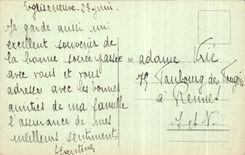 28 Juin.
Je garde aussi un
excellent souvenir de
la bonne soirée passée
avec vous et vous
adresse avec les bonnes
amitiés de ma famille
l'assurance de mes
meilleurs sentiments.
adame
75 Faubourg de
à Rennes
I.-et-V.